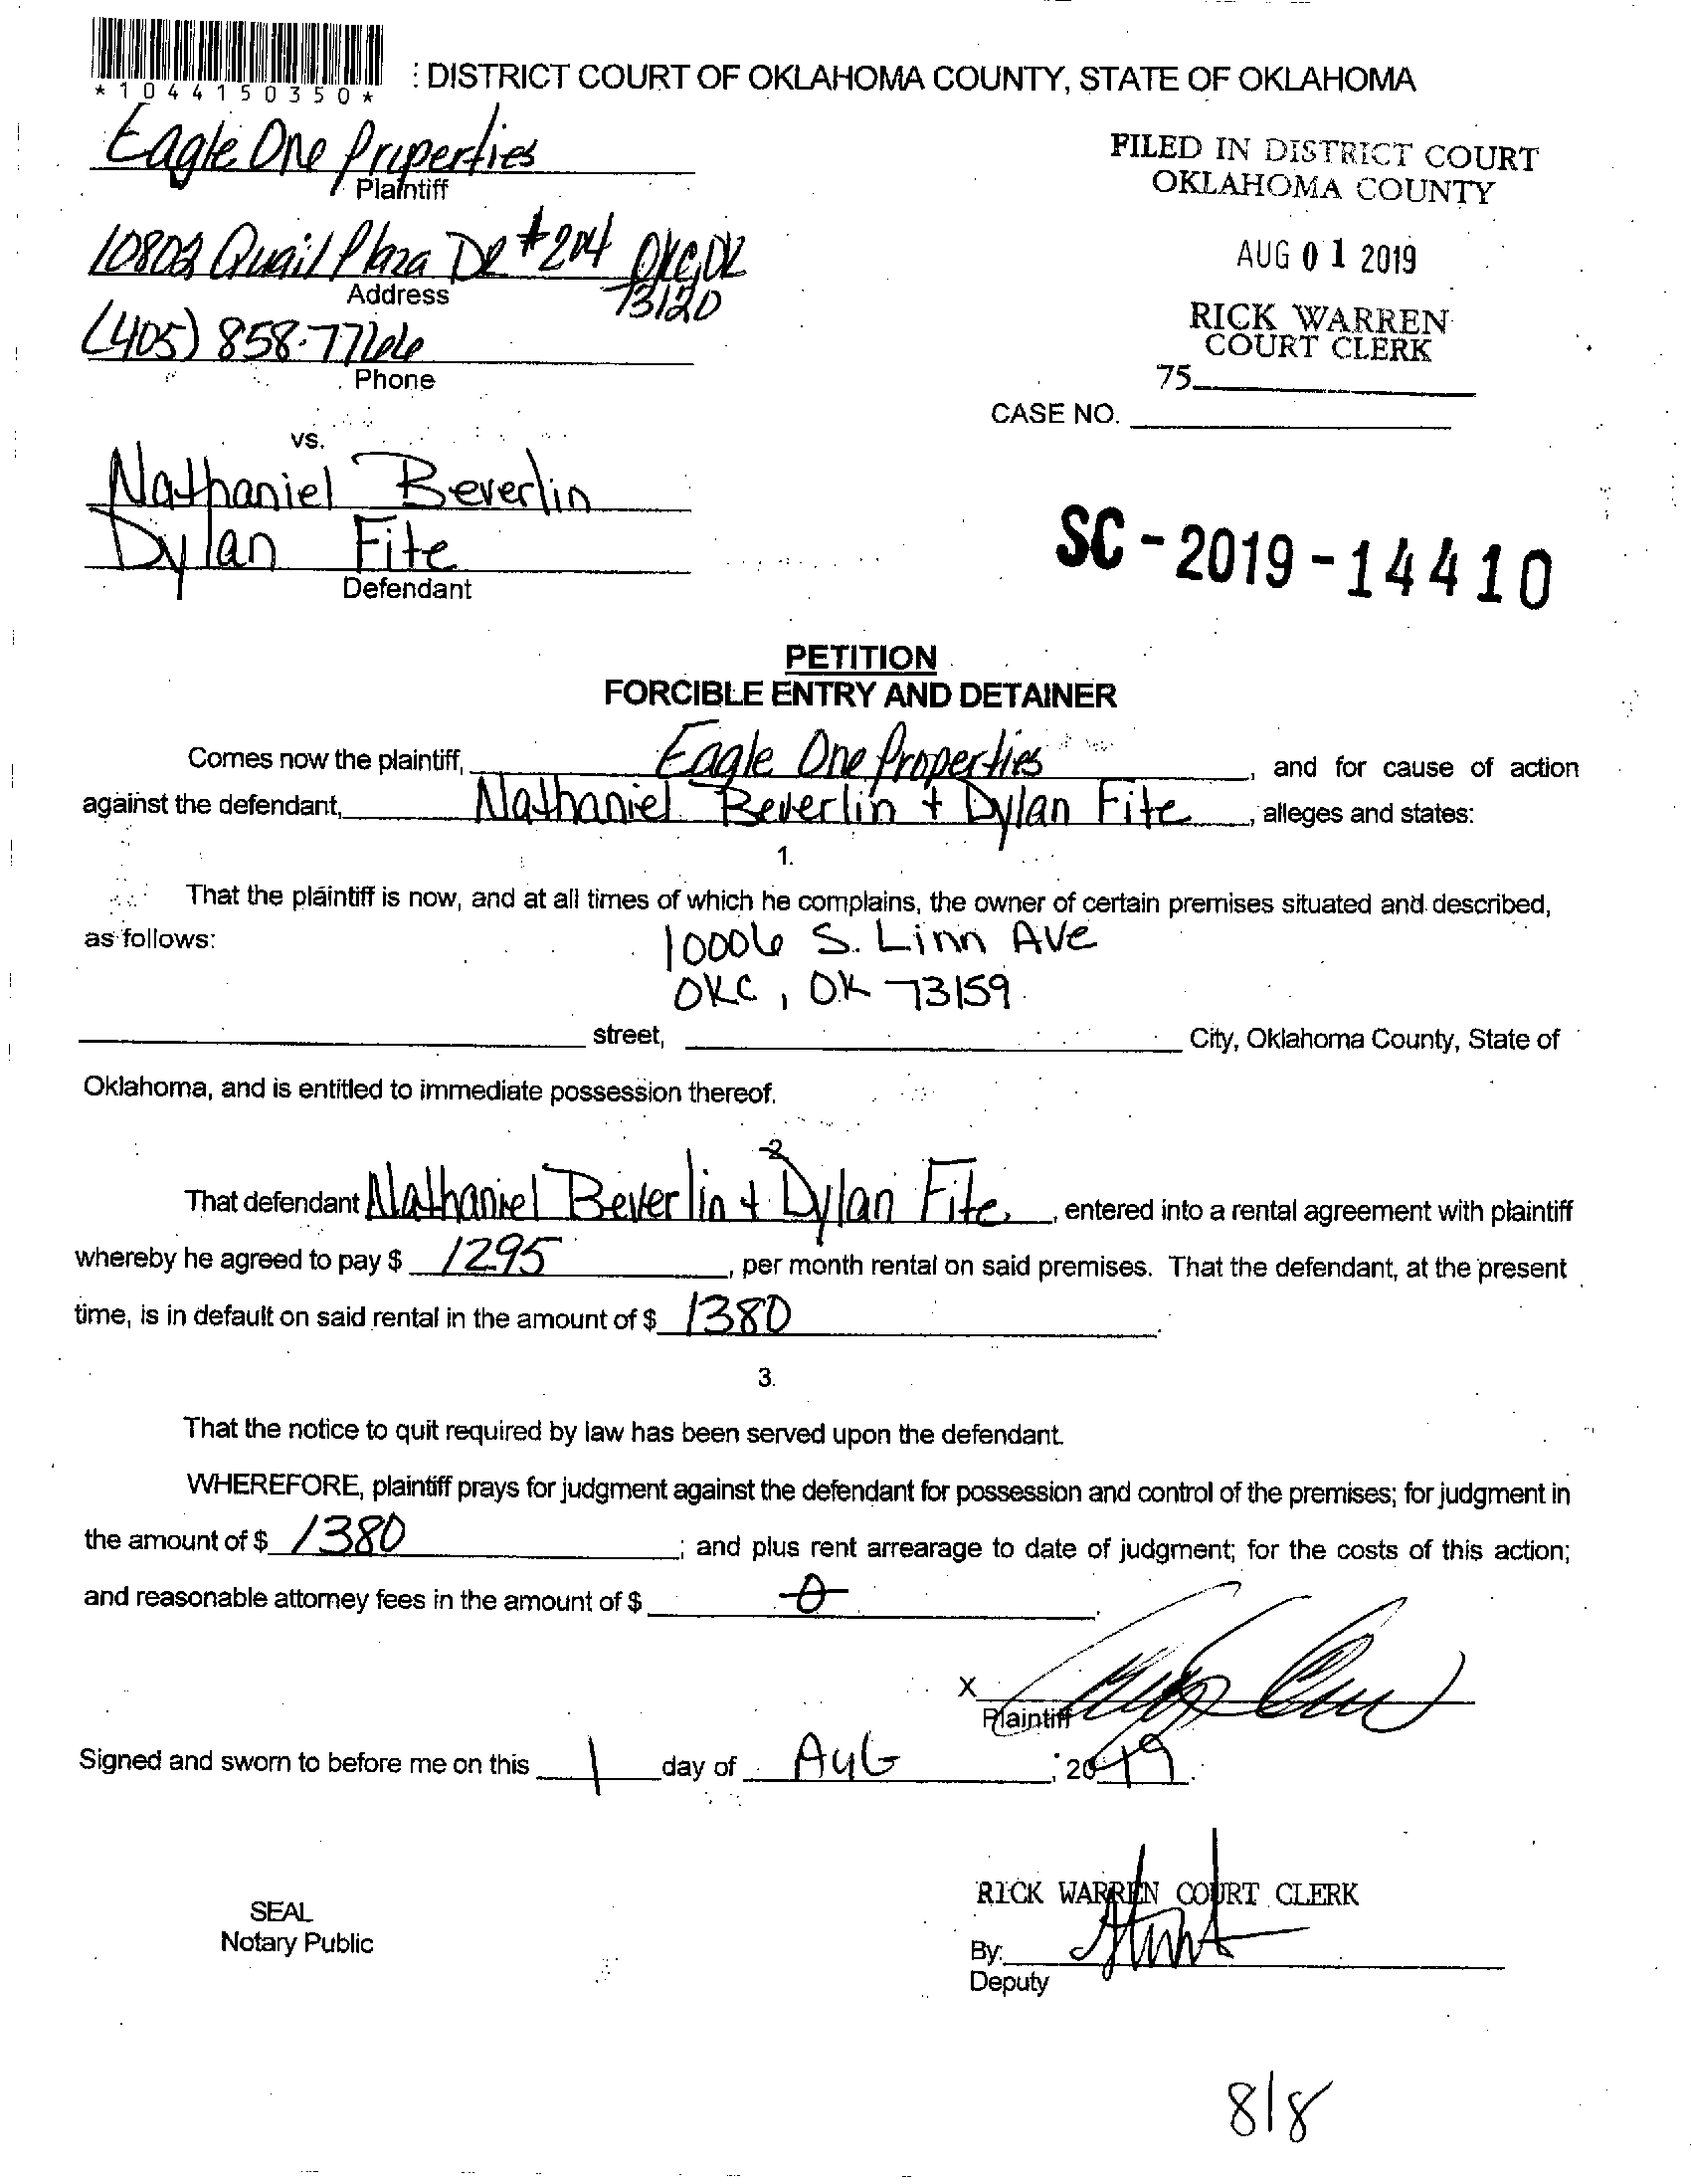 *1044150350*
: DISTRICT COURT OF OKLAHOMA COUNTY, STATE OF OKLAHOMA
Eagle One Properties
Plaintiff
FILED IN DISTRICT COURT
OKLAHOMA COUNTY
10802 Quail Plaza DR #204 OKC, OK
73120
Address
AUG 01 2019
(405) 858-7766
Phone
RICK WARREN
COURT CLERK
75
CASE NO.
vs.
Nathaniel Beverlin
Dylan Fite
Defendant
SC-2019-14410
PETITION
FORCIBLE ENTRY AND DETAINER
Comes now the plaintiff, Eagle One Properties, and for cause of action
against the defendant, Nathaniel Beverlin + Dylan Fite, alleges and states:
1.
That the plaintiff is now, and at all times of which he complains, the owner of certain premises situated and described,
as follows: 10006 S. Linn Ave
OKC, OK 73159
street, City, Oklahoma County, State of
Oklahoma, and is entitled to immediate possession thereof.
2
That defendant Nathaniel Beverlin + Dylan Fite, entered into a rental agreement with plaintiff
whereby he agreed to pay $ 1295, per month rental on said premises. That the defendant, at the present
time, is in default on said rental in the amount of $ 1380.
3.
That the notice to quit required by law has been served upon the defendant.
WHEREFORE, plaintiff prays for judgment against the defendant for possession and control of the premises; for judgment in
the amount of $ 1380; and plus rent arrearage to date of judgment; for the costs of this action;
and reasonable attorney fees in the amount of $ 0.
X
Plaintiff
Signed and sworn to before me on this 1 day of AUG, 2019.
RICK WARREN COURT CLERK
SEAL
Notary Public
By:
Deputy
8/8